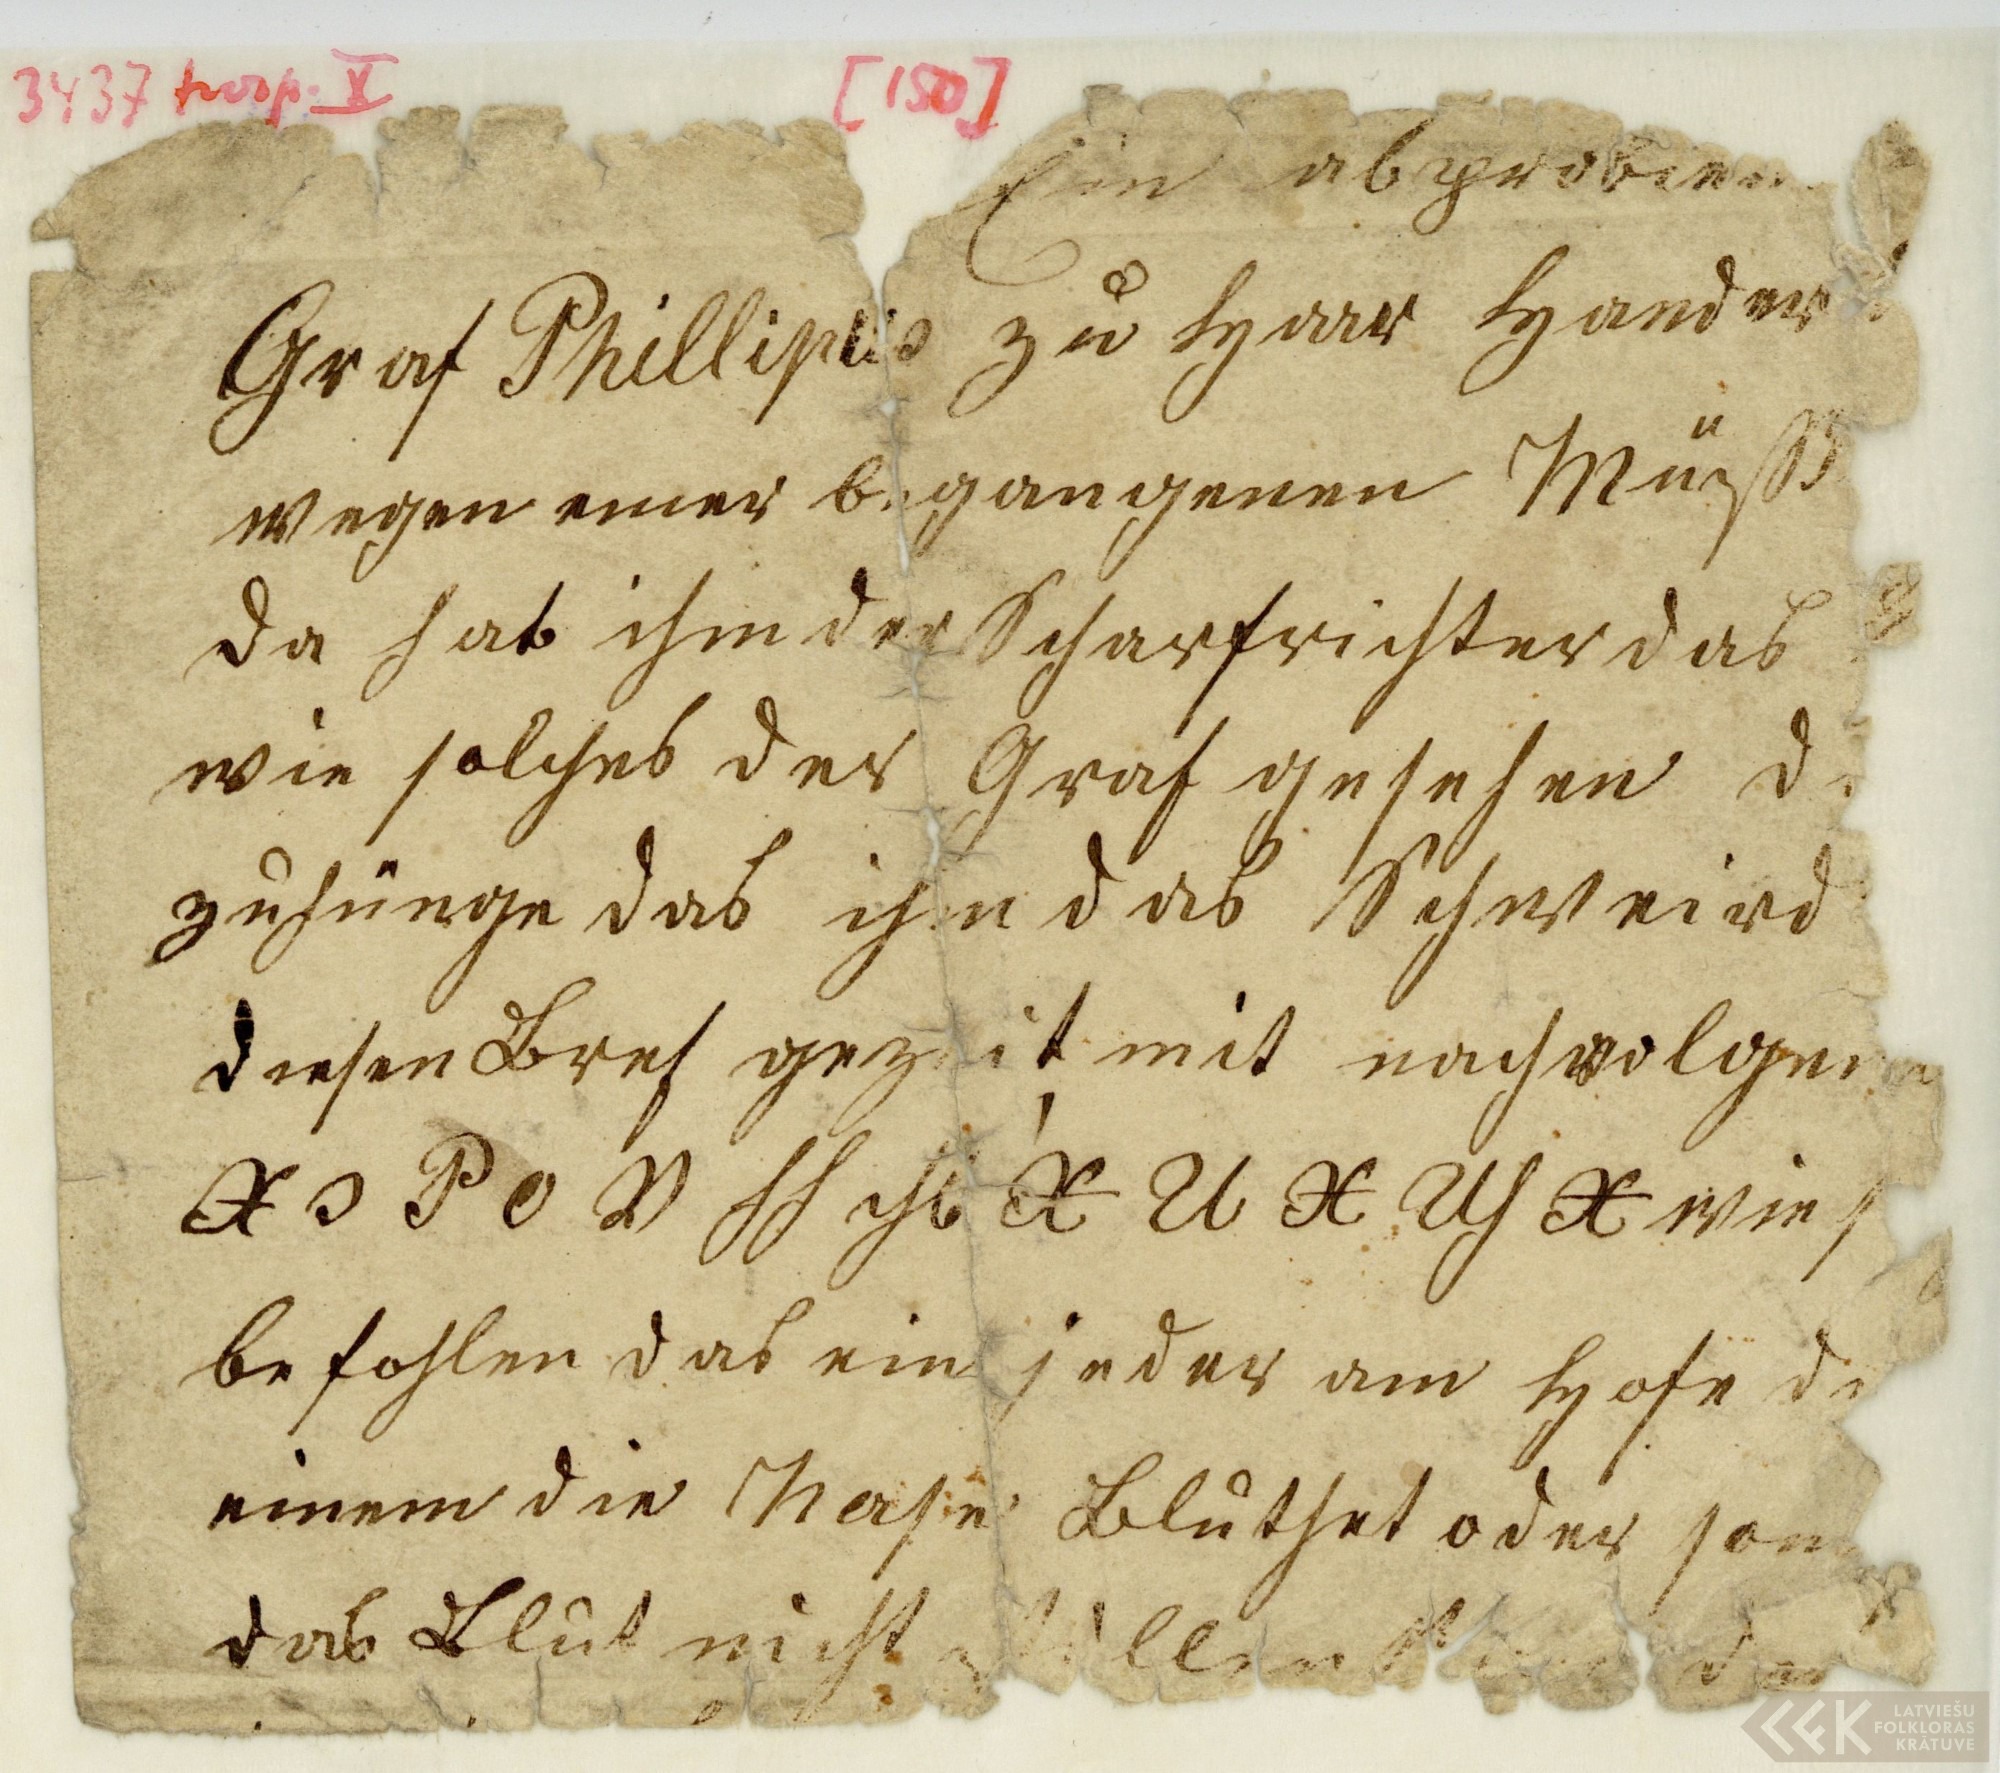 3437 [150]
Ein abprobier
Graf Phillipus zu Haar Hander
wegen einer begangenen Müss
da hat ihm der Scharfrichter das
wie solches der Graf gesehen d
zuhünge das ihm das Schweird
diesen Bref gezeit mit nachvolgen
X P o V X U X X wie s
befohlen das ein jeder am Hofe di
einem die Nase Bluthet oder son
das Blut nicht
LATVIEŠU
FOLKLORAS
KRĀTUVE